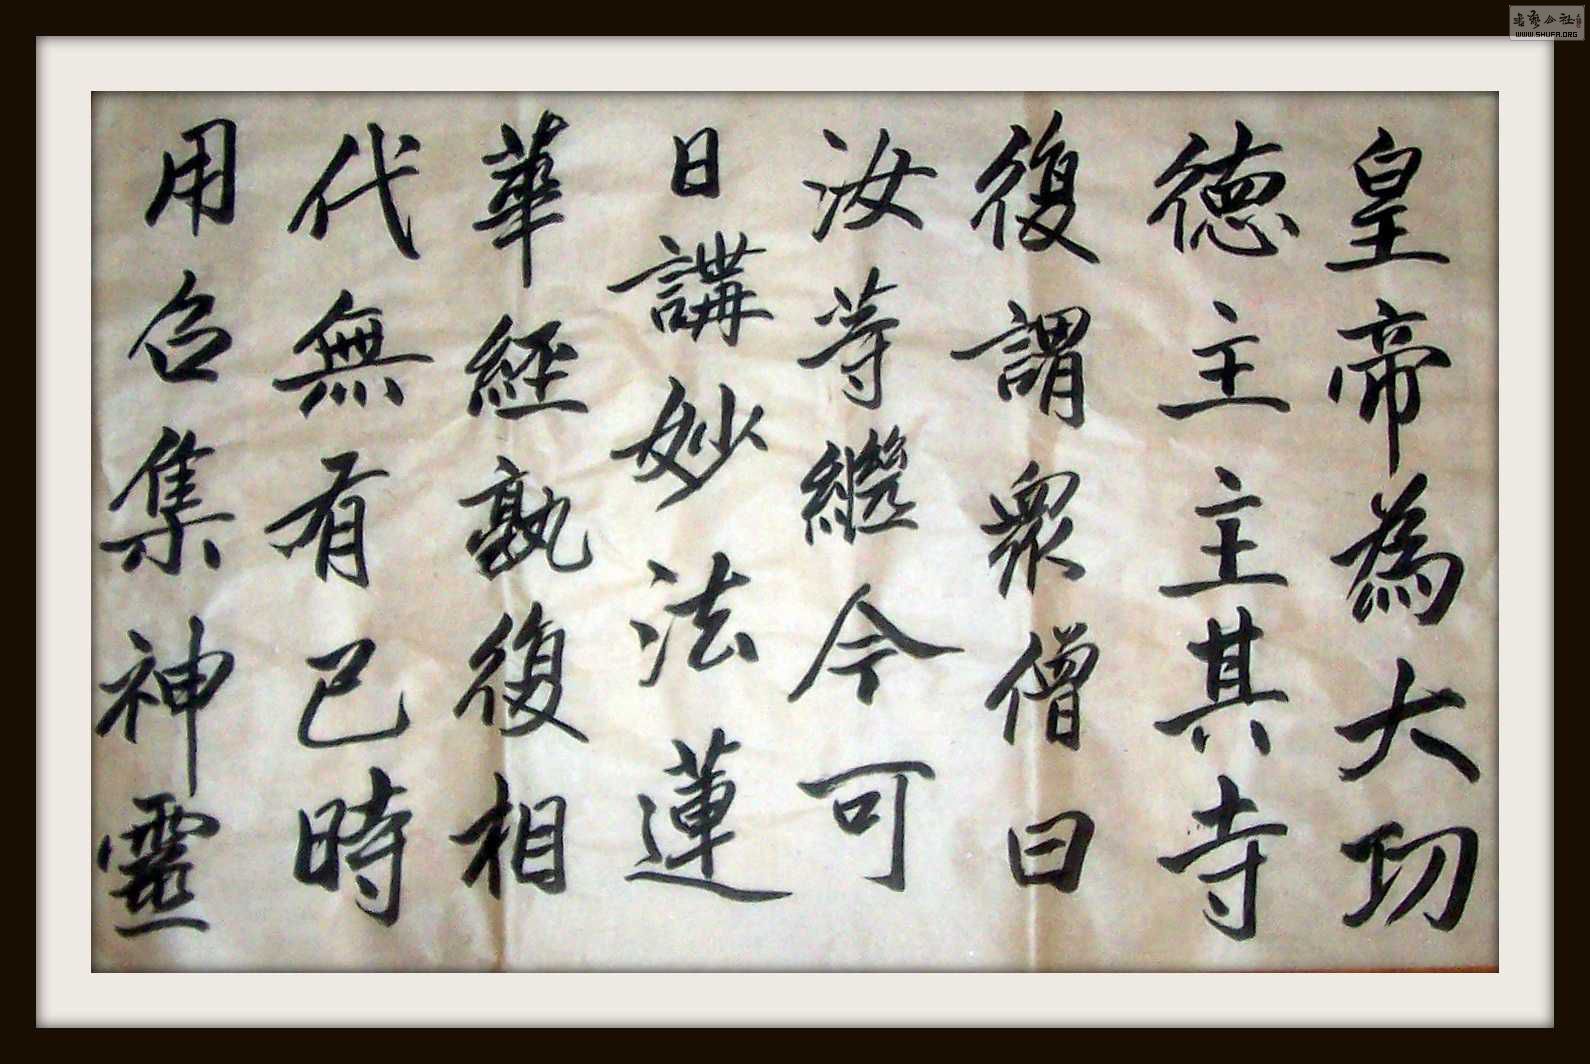 皇帝為大功
德主主其寺
復謂眾僧曰
汝等繼今可
日講妙法蓮
華經孰復相
代無有已時
用召集神靈
WWW.SHUFA.ORG